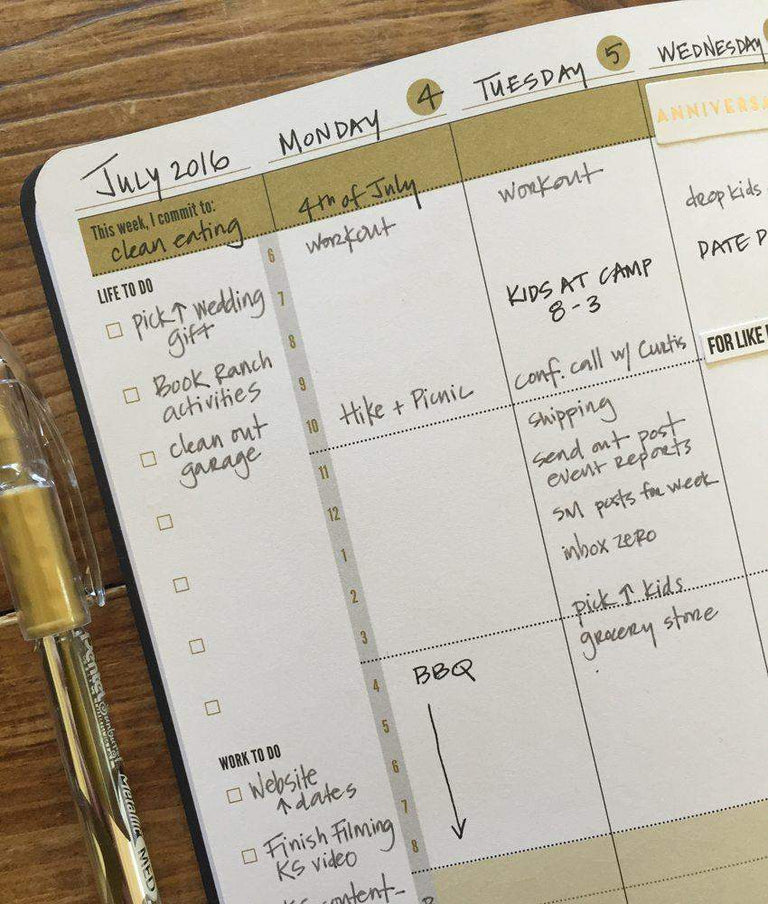 JULY 2016
MONDAY 4
TUESDAY 5
WEDNESDAY
This week, I commit to:
clean eating
LIFE TO DO
Pick↑ wedding
gift
Book Ranch
activities
clean out
garage
WORK TO DO
Website
↑dates
Finish Filming
KS video
6
7
8
9
10
11
12
1
2
3
4
5
6
7
8
4th of July
workout
Hike + Picnic
BBQ
workout
KIDS AT CAMP
8-3
conf. call w/ Curtis
shipping
send out post
event reports
SM posts for week
inbox zero
pick ↑ kids
grocery store
ANNIVERSA
drop kids
DATE
FOR LIKE
Pentel
Metallic MED